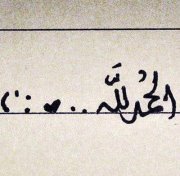 الحمدُللَّه .. ♥ :")